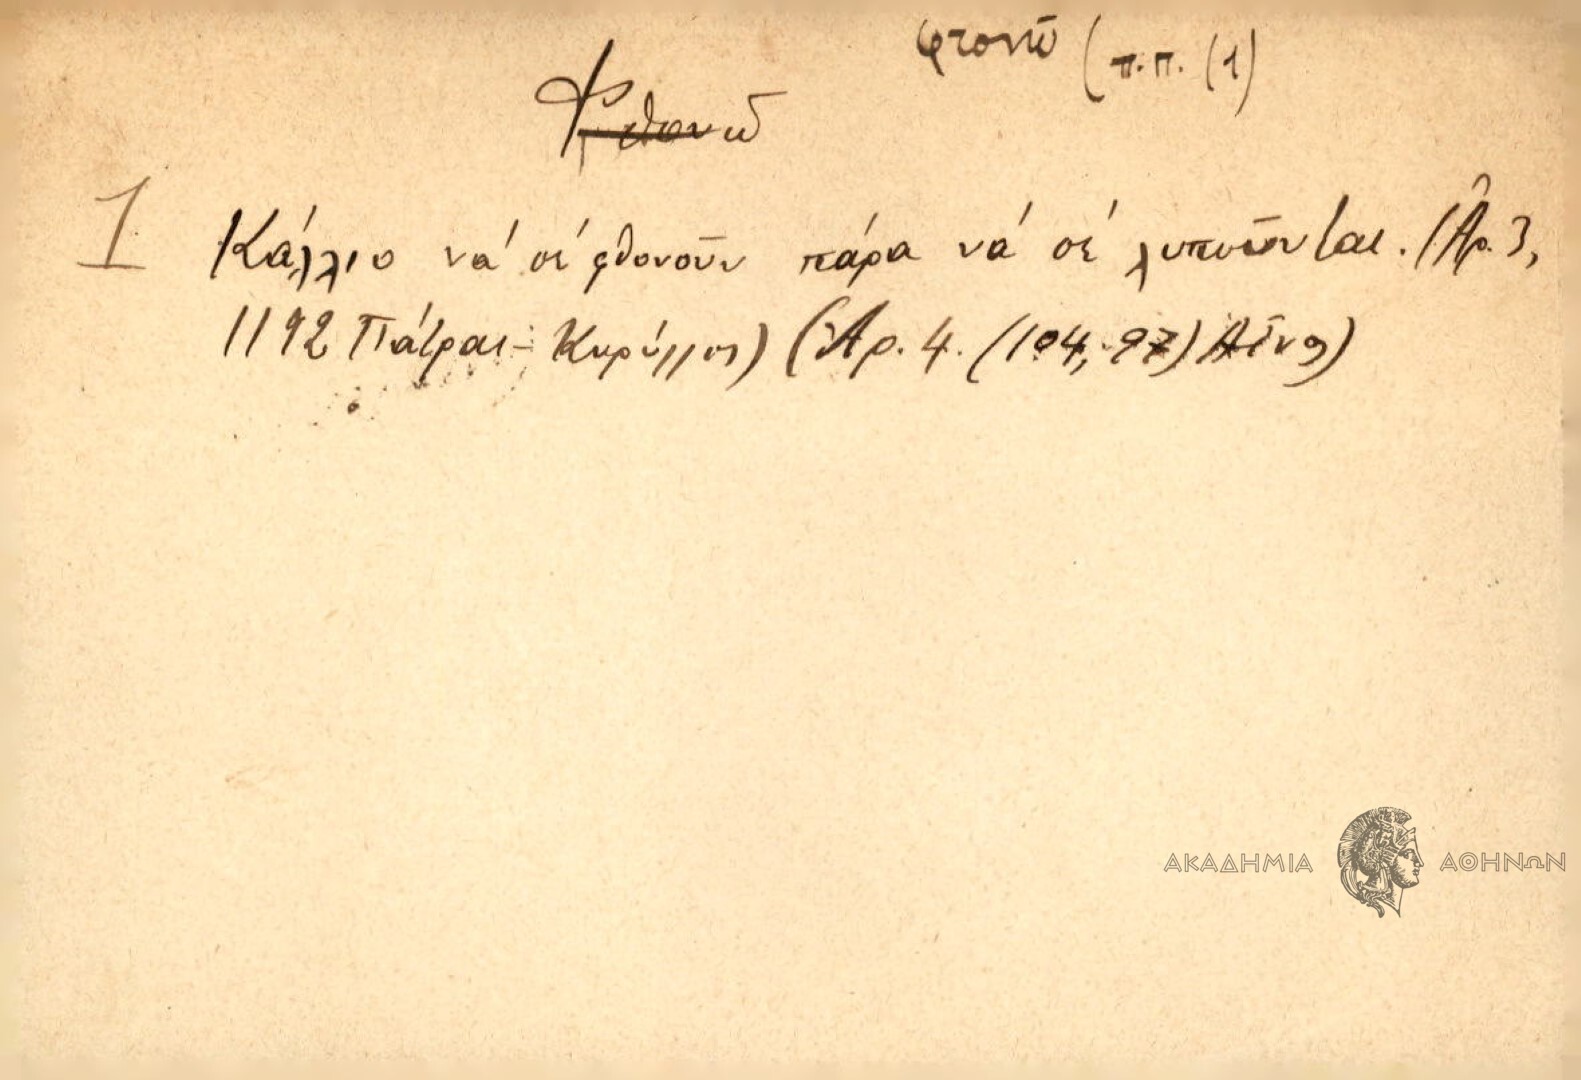 φτονῶ (π.π. (1)
Φθονῶ
1 Κάλλιο νά σέ φθονοῦν πάρα νά σέ λυποῦνται. (Ἀρ. 3,
1192 Πάτραι - Κυρύλλος) (Ἀρ. 4. (104, 97) Αἶνος)
ΑΚΑΔΗΜΙΑ ΑΘΗΝΩΝ